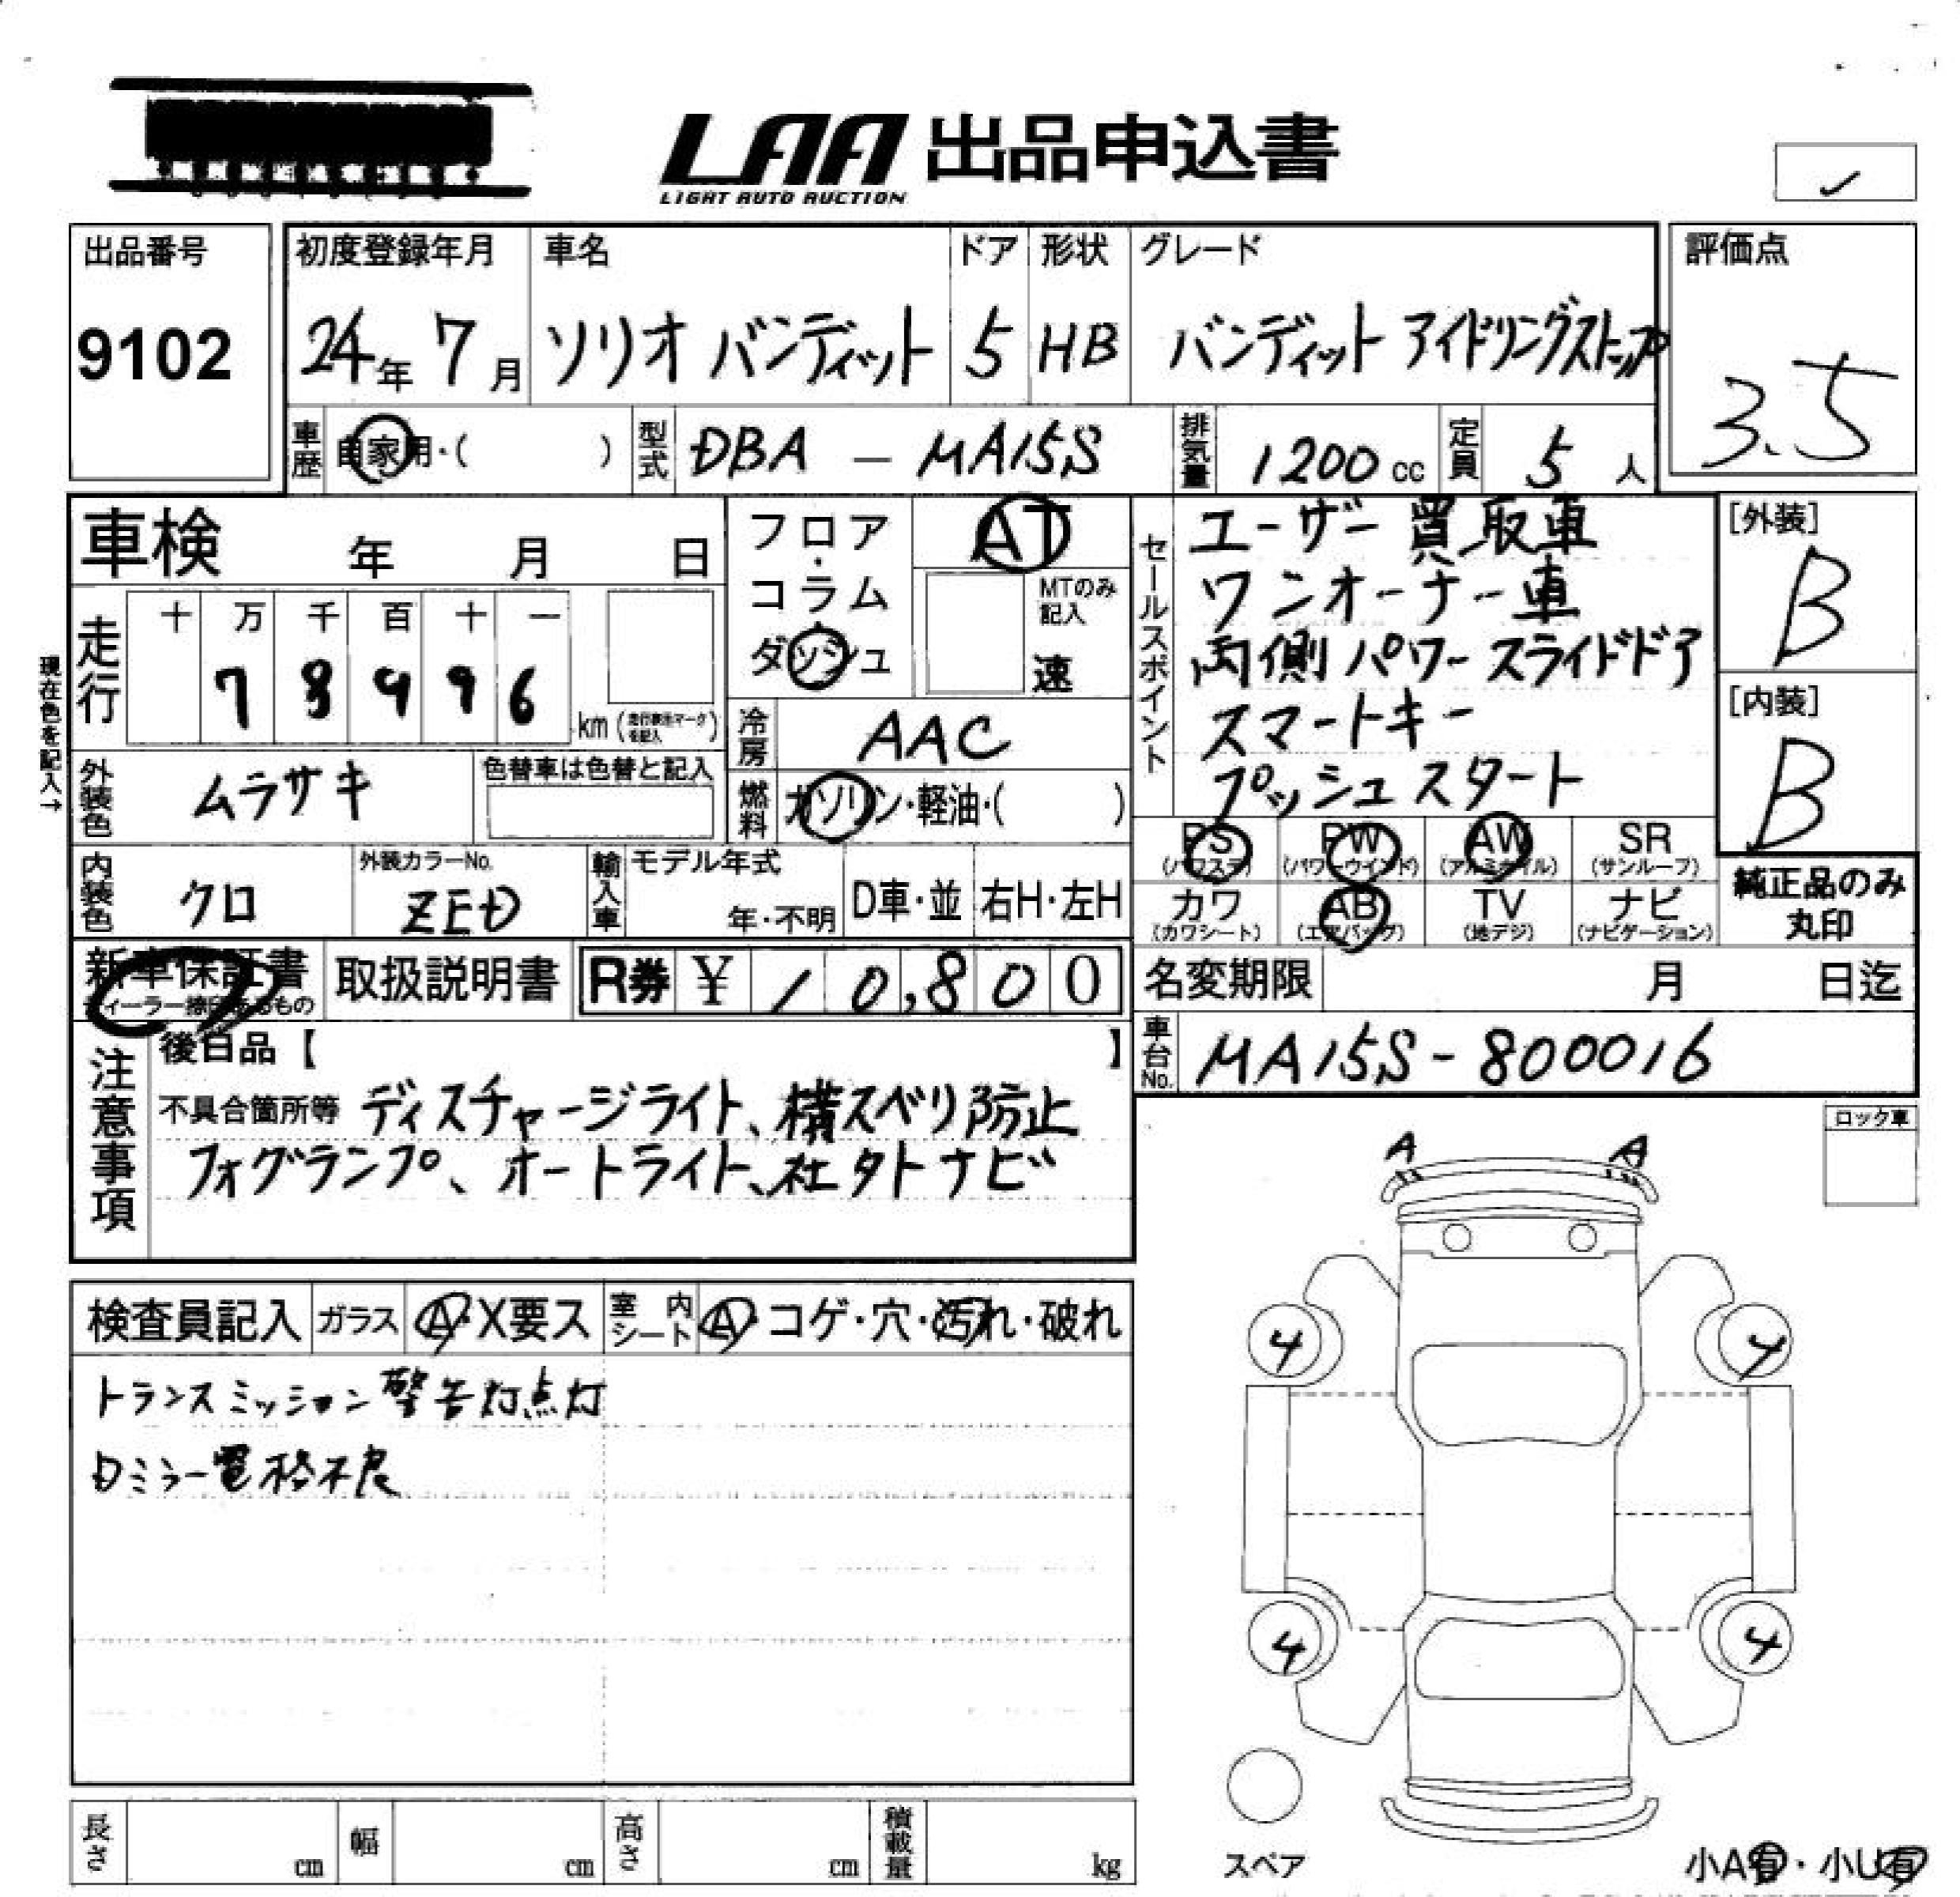 LAA 出品申込書
LIGHT AUTO AUCTION
✓
出品番号
9102
初度登録年月
24年 7月
車名
ソリオ バンディット
ドア
5
形状
HB
グレード
バンディット アイドリングストップ
評価点
3.5
車歴 自家用・( )
型式 DBA - MA15S
排気量 1200 cc
定員 5 人
車検 年 月 日
フロア・コラム・ダッシュ
AT
MTのみ記入
速
セールスポイント
エーザー買取車
ワンオーナー車
両側パワースライドドア
スマートキー
プッシュスタート
[外装]
B
[内装]
B
現在色を記入→
走行
十 万 千 百 十 一
7 9 9 6
km
冷房 AAC
外装色 ムラサキ
色替車は色替と記入
燃料 ガソリン・軽油・( )
PS PW AW SR
(パワステ) (パワーウインド) (アルミホイル) (サンルーフ)
カワ AB TV ナビ
(カワシート) (エアバッグ) (地デジ) (ナビゲーション)
純正品のみ
丸印
内装色 クロ
外装カラーNo.
ZED
輸入車
モデル年式
年・不明
D車・並 右H・左H
新車保証書
取扱説明書
R券 ¥ 10,800
名変期限 月 日迄
車台No. MA15S-800016
注意事項
後日品【 】
不具合箇所等 ディスチャージライト、横スベリ防止
フォグランプ、オートライト、社外ナビ
ロック車
A A
検査員記入 ガラス A・X要ス 室内シート A・コゲ・穴・汚れ・破れ
トランスミッション警告灯点灯
Dミラー電格不良
4 4
4 4
スペア
長さ cm 幅 cm 高さ cm 積載量 kg
小A有・小U有